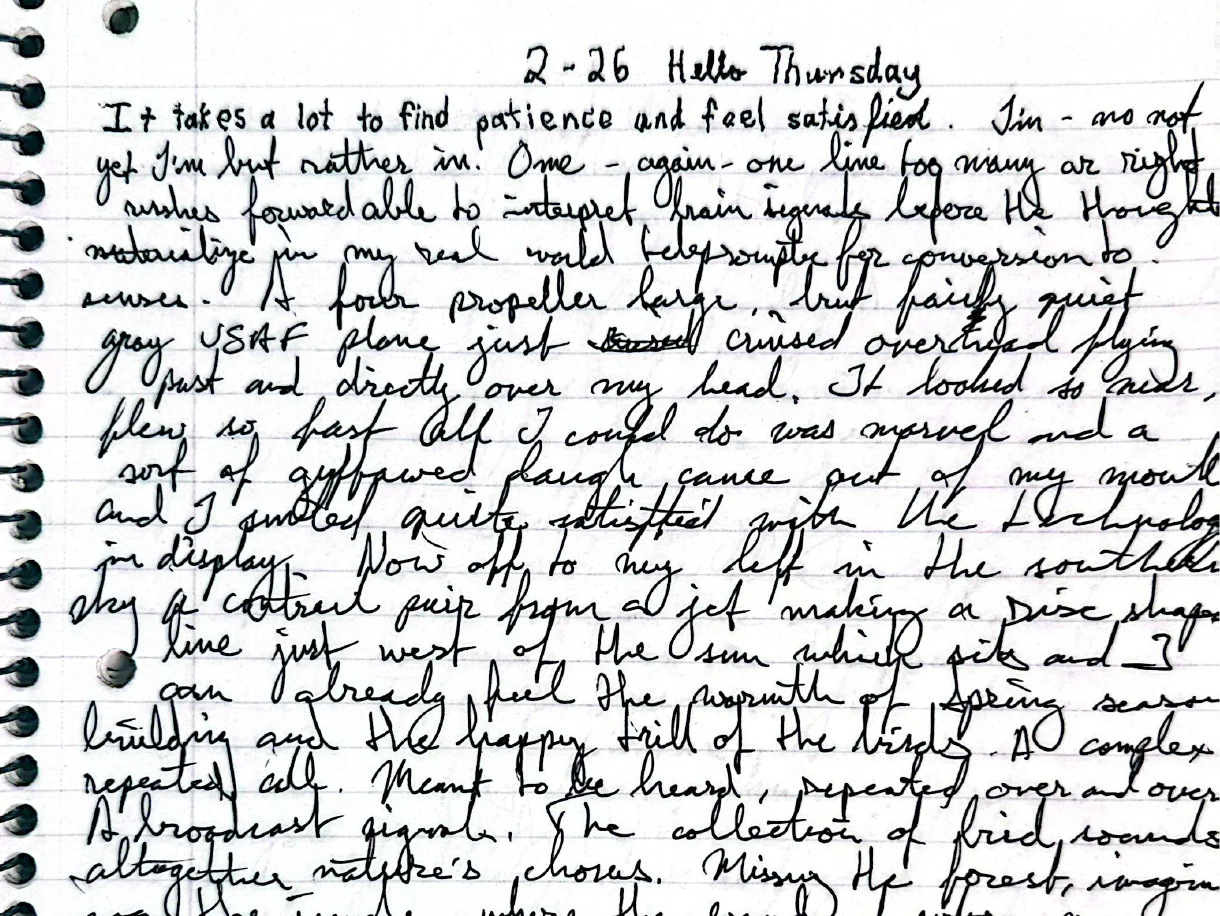 2-26 Hello Thursday
It takes a lot to find patience and feel satisfied. I'm - no not
yet I'm but rather in. One - again - one line too many or right
rushes forward able to interpret brain signals before the thought
materialize in my real world teleprompter for conversion to
senses. A four propeller large, but fairly quiet
gray USAF plane just cruised overhead flying
past and directly over my head. It looked so near,
flew so fast all I could do was marvel and a
sort of guffawed laugh came out of my mouth
and I smiled quite satisfied with the technolog
in display. Now off to my left in the southern
sky a contrail pair from a jet making a disc shape
line just west of the sun which sits and I
can already feel the warmth of spring season
building and the happy trill of the birds. A complex
repeated call. Meant to be heard, repeated over and over
A broadcast signal. The collection of sounds
altogether nature's chorus. Missing the forest, imagin
where the